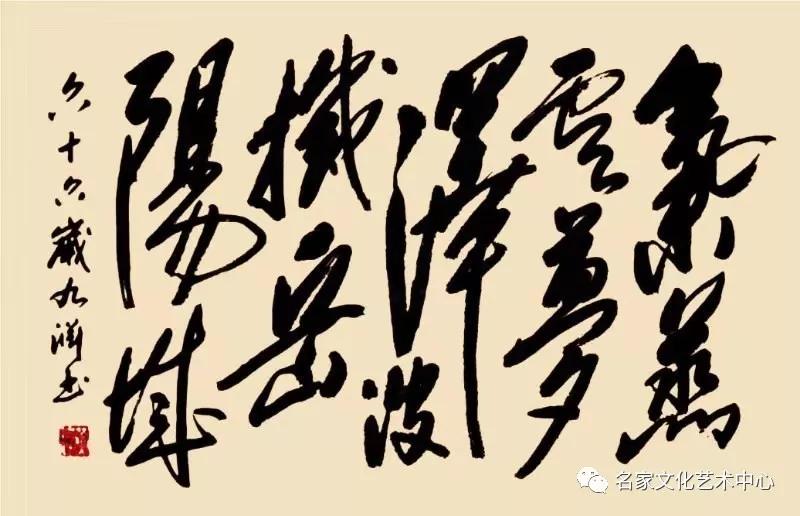 氣蒸
雲夢
澤波
撼岳
陽城
六十六歲九書
名家文化艺术中心